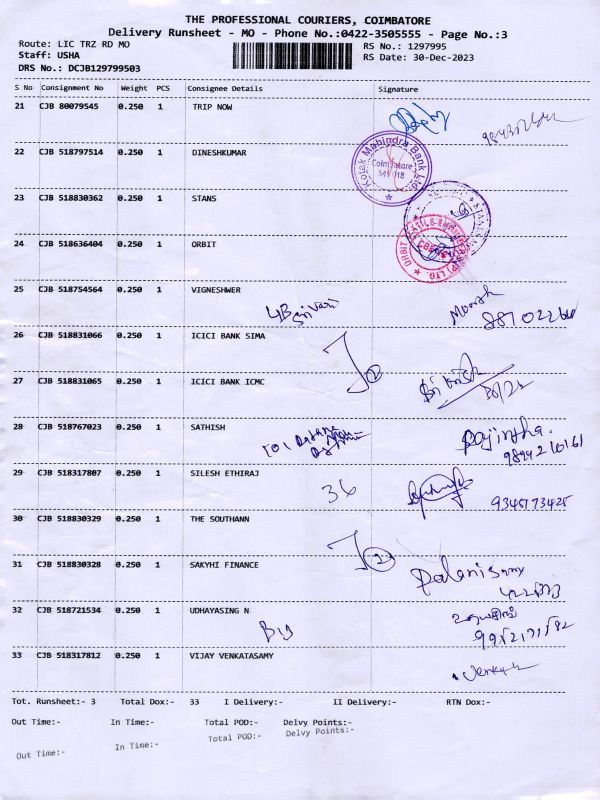 THE PROFESSIONAL COURIERS, COIMBATORE
Delivery Runsheet - MO - Phone No.:0422-3505555 - Page No.:3
Route: LIC TRZ RD MO RS No.: 1297995
Staff: USHA RS Date: 30-Dec-2023
DRS No.: DCJB129799503
S No Consignment No Weight PCS Consignee Details Signature
21 CJB 80079545 0.250 1 TRIP NOW
22 CJB 518797514 0.250 1 DINESHKUMAR
Kotak Mahindra Bank Ltd
Coimbatore
641 018
23 CJB 518830362 0.250 1 STANS
24 CJB 518636404 0.250 1 ORBIT
25 CJB 518754564 0.250 1 VIGNESHWER
26 CJB 518831066 0.250 1 ICICI BANK SIMA
27 CJB 518831065 0.250 1 ICICI BANK ICMC
28 CJB 518767023 0.250 1 SATHISH
29 CJB 518317807 0.250 1 SILESH ETHIRAJ
36 9345173425
30 CJB 518830329 0.250 1 THE SOUTHANN
31 CJB 518830328 0.250 1 SAKYHI FINANCE
Palanisamy
32 CJB 518721534 0.250 1 UDHAYASING N
33 CJB 518317812 0.250 1 VIJAY VENKATASAMY
Tot. Runsheet:- 3 Total Dox:- 33 I Delivery:- II Delivery:- RTN Dox:-
Out Time:- In Time:- Total POD:- Delvy Points:-
Out Time:- In Time:- Total POD:- Delvy Points:-